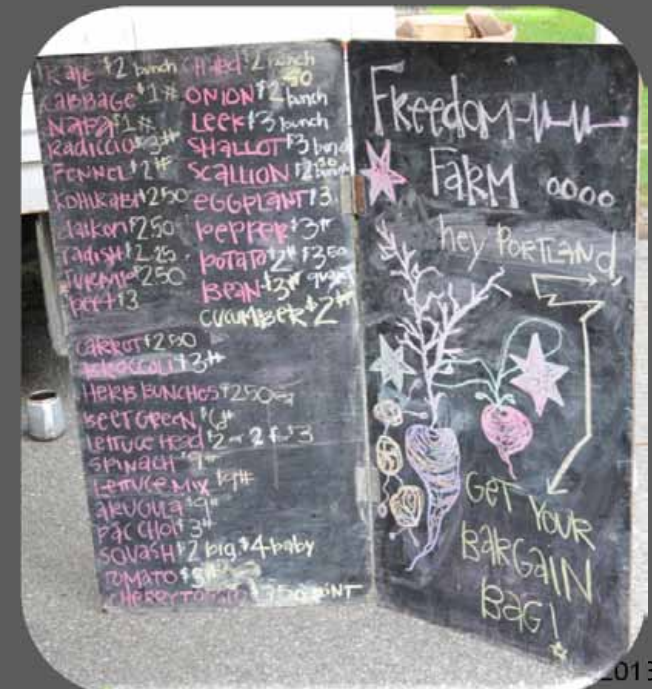 KALE $2 bunch
CABBAGE $1#
NAPA $1#
RADICCIO $3#
FENNEL $2#
KOHLRABI $250
daikon $250
radish $2.25
TURNIP $250
beet $3
CHARD $2 bunch
ONION $2 50 bunch
LEEK $3 bunch
SHALLOT $3
SCALLION $2 50
EGGPLANT $3
PEPPER $3#
POTATO $2# $350 quart
BEAN $3#
CUCUMBER $2#
CARROT $250
BROCCOLI $3#
HERB BUNCHES $250 ea
BEET GREEN $6#
LETTUCE HEAD $2 2 for $3
SPINACH $9#
LETTUCE MIX $9#
ARUGULA $9#
PAC CHOI $3#
SQUASH $2 big $4 baby
TOMATO
CHERRY TOMATO $350 PINT
FREEDOM
FARM
hey PORTLAND,
GET YOUR
BARGAIN
BAG!
2013